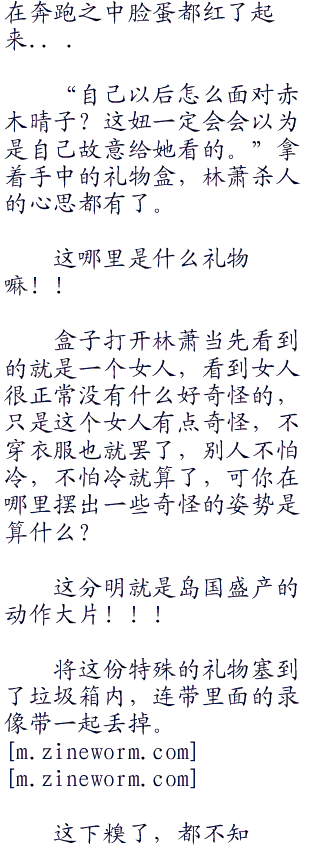 在奔跑之中脸蛋都红了起
来．．．
“自己以后怎么面对赤
木晴子？这妞一定会会以为
是自己故意给她看的。”拿
着手中的礼物盒，林萧杀人
的心思都有了。
这哪里是什么礼物
嘛！！
盒子打开林萧当先看到
的就是一个女人，看到女人
很正常没有什么好奇怪的，
只是这个女人有点奇怪，不
穿衣服也就罢了，别人不怕
冷，不怕冷就算了，可你在
哪里摆出一些奇怪的姿势是
算什么？
这分明就是岛国盛产的
动作大片！！！
将这份特殊的礼物塞到
了垃圾箱内，连带里面的录
像带一起丢掉。
[m.zineworm.com]
[m.zineworm.com]
这下糗了，都不知